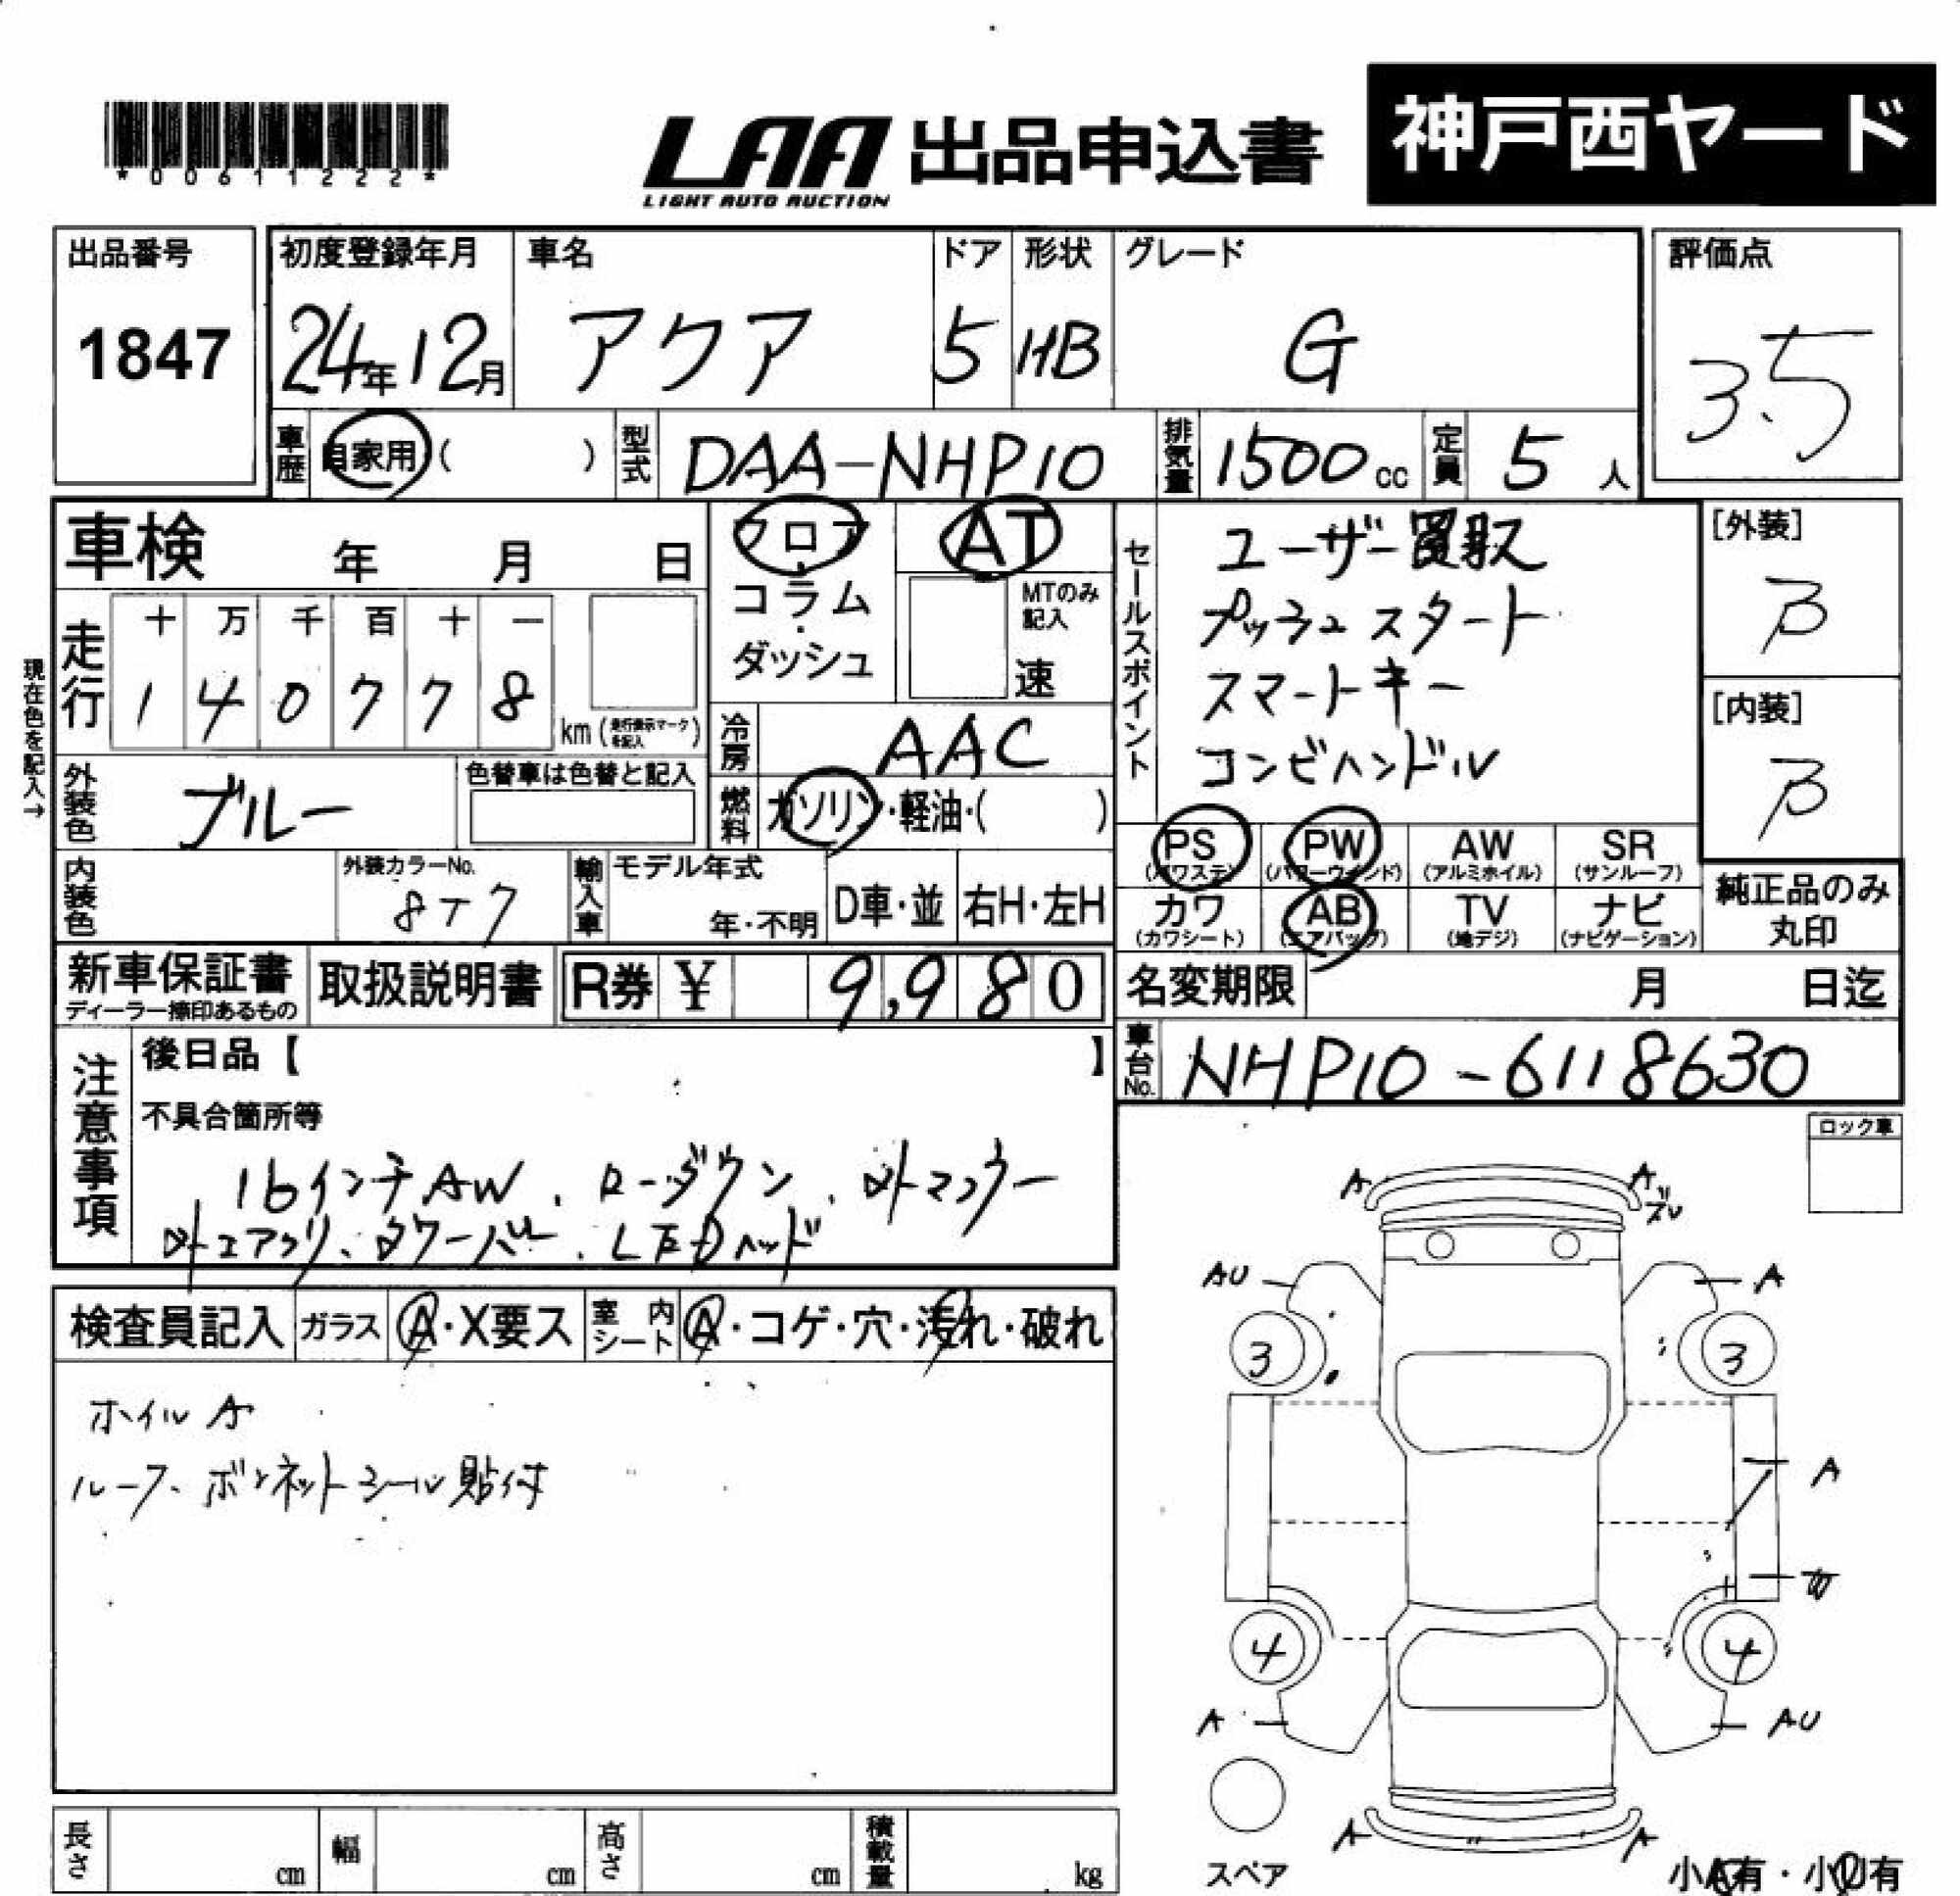 *00611222*
LAA 出品申込書
LIGHT AUTO AUCTION
神戸西ヤード
出品番号
1847
初度登録年月
24年12月
車名
アクア
ドア
5
形状
HB
グレード
G
評価点
3.5
車歴
自家用 ( )
型式
DAA-NHP10
排気量
1500 cc
定員
5 人
車検 年 月 日
フロア
コラム
ダッシュ
AT
MTのみ
記入
速
セールスポイント
ユーザー買取
プッシュスタート
スマートキー
コンビハンドル
[外装]
B
[内装]
B
現在色を記入→
走行
十 万 千 百 十 一
1 4 0 7 7 8
km (走行表示マークを記入)
冷房
AAC
外装色
ブルー
色替車は色替と記入
燃料
ガソリン・軽油・( )
PS
(パワステ)
PW
(パワーウインド)
AW
(アルミホイル)
SR
(サンルーフ)
カワ
(カワシート)
AB
(エアバッグ)
TV
(地デジ)
ナビ
(ナビゲーション)
純正品のみ
丸印
内装色
外装カラーNo.
8T7
輸入車
モデル年式
年・不明
D車・並
右H・左H
新車保証書
ディーラー捺印あるもの
取扱説明書
R券 ¥ 9,980
名変期限 月 日迄
車台No.
NHP10-6118630
注意事項
後日品【 】
不具合箇所等
16インチAW、ローダウン、社外マフラー
社外エアクリ、タワーバー、LEDヘッド
ロック車
検査員記入
ガラス
A・X要ス
室内
シート
A・コゲ・穴・汚れ・破れ
ホイルA
ルーフ、ボンネットシール貼付
A
A
ズレ
AU
A
3
3
A
W
4
4
A
AU
A
A
スペア
小A有・小U有
長さ
cm
幅
cm
高さ
cm
積載量
kg